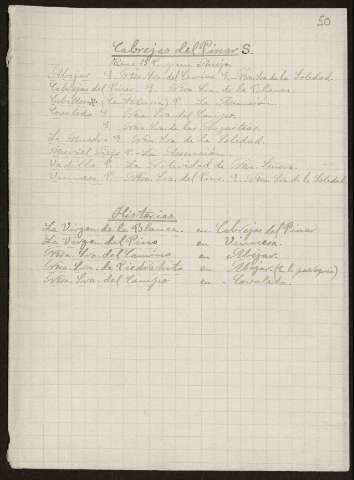 50
Cabrejas del Pinar S.
Tiene 13 P. y una
Abejar S. Ntra. Sra. del Camino S. Ntra. Sra. de la Soledad
Cabrejas del Pinar. S. Ntra. Sra. de la Blanca
Cubilla (Cantalucia) P. La Asunción
Covaleda S. Ntra. Sra. del Campo
S. Ntra. Sra. de las Angustias
La Muedra S. Ntra. Sra. de la Soledad.
Muriel Viejo P. La Asunción
Vadillo P. La Natividad de Ntra. Señora
Vinuesa P. Ntra. Sra. del Pino. S. Ntra. Sra. de la Soledad
Historias
La Virgen de la Blanca. en Cabrejas del Pinar
La Virgen del Pino en Vinuesa.
Ntra. Sra. del Camino en Abejar.
Ntra. Sra. de Piedrahita en Abejar. (en la parroquia)
Ntra. Sra. del Campo en Covaleda.